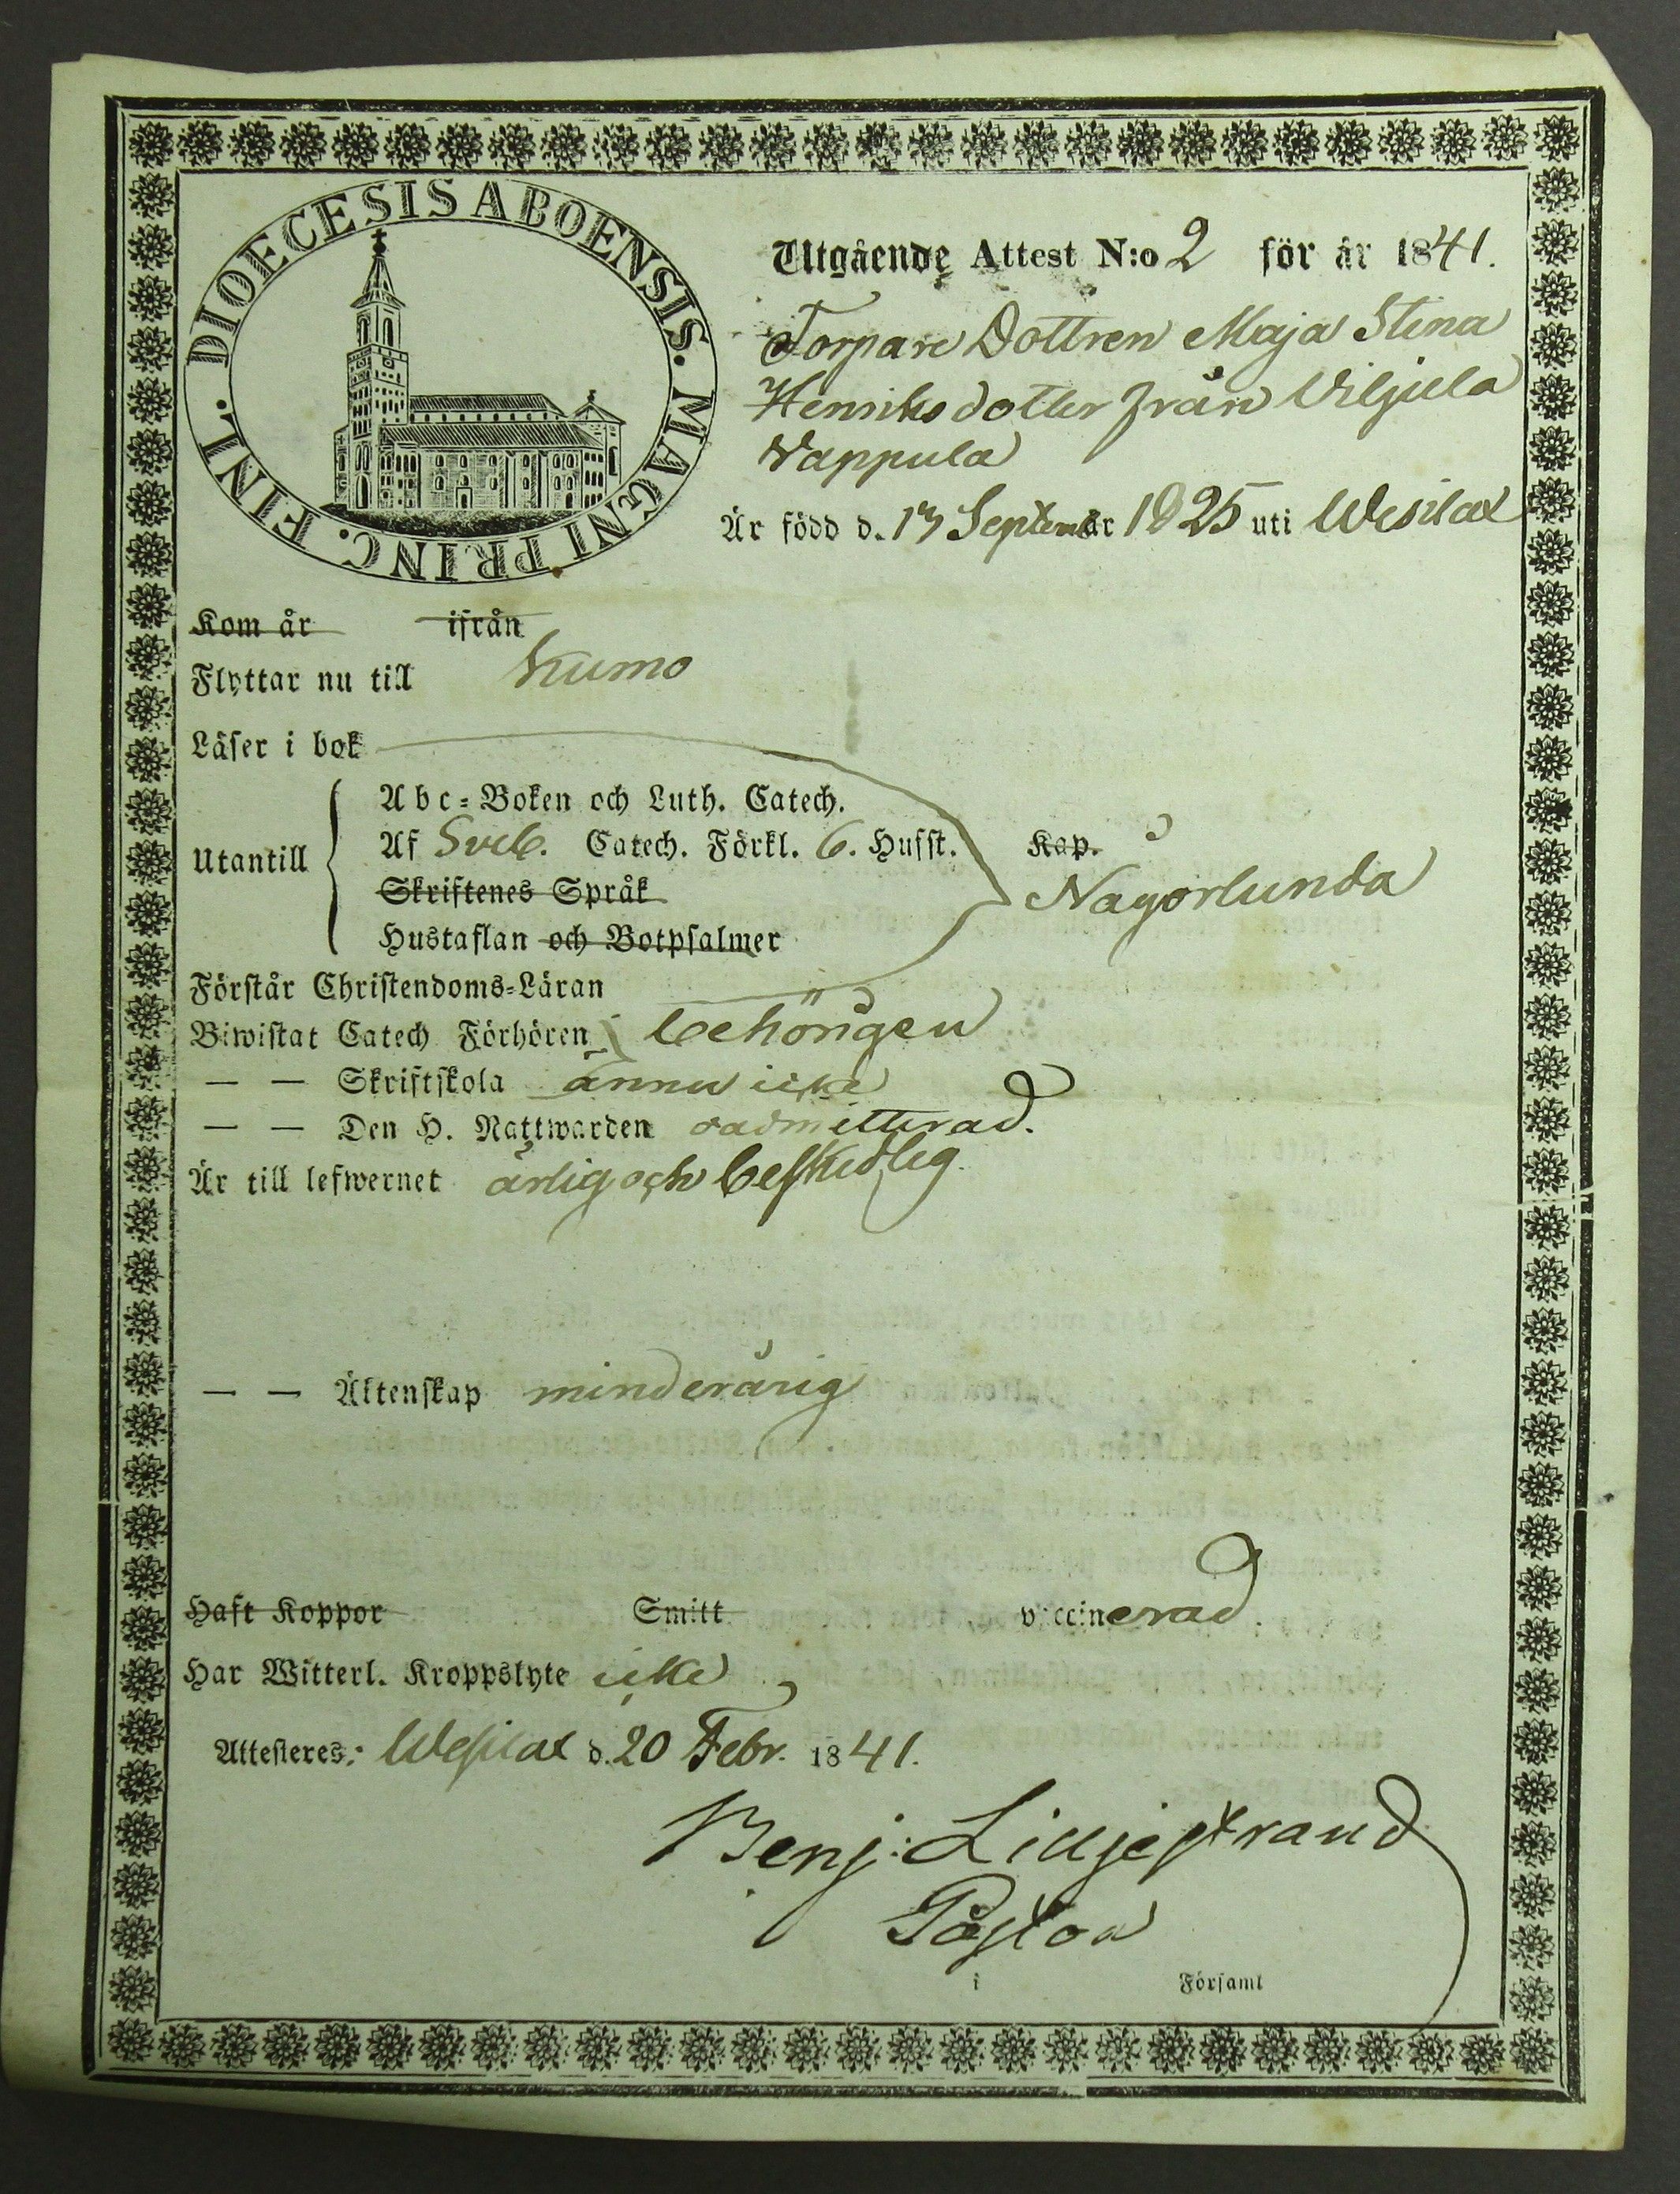 DIOECESIS ABOENSIS. MAGNI PRINC. FINL.
Utgående Attest N:o 2 för år 1841.
Torpare Dottren Maja Stina
Henriksdotter från Viljula
Nappula
Är född d. 13 September 1825 uti Wesilax
Kom år ifrån
Flyttar nu till Kumo
Läser i bok
Abc-Boken och Luth. Catech.
Utantill Af Sveb. Catech. Förkl. 6. Hufst. Kap.
Skriftenes Språk Någorlunda
Hustaflan och Botpsalmer
Förstår Christendoms-Läran
Biwistat Catech Förhören behörigen
— — Skriftskola ännu icke
— — Den H. Nattwarden oadmitterad.
Är till lefwernet ärlig och beskedlig.
— — Äktenskap minderårig
Haft Koppor Smitt vaccinerad.
Har Witterl. Kroppslyte icke
Attesteres: Wesilax d. 20 Febr. 1841.
Benj: Liljestrand
Pastor
i Församl